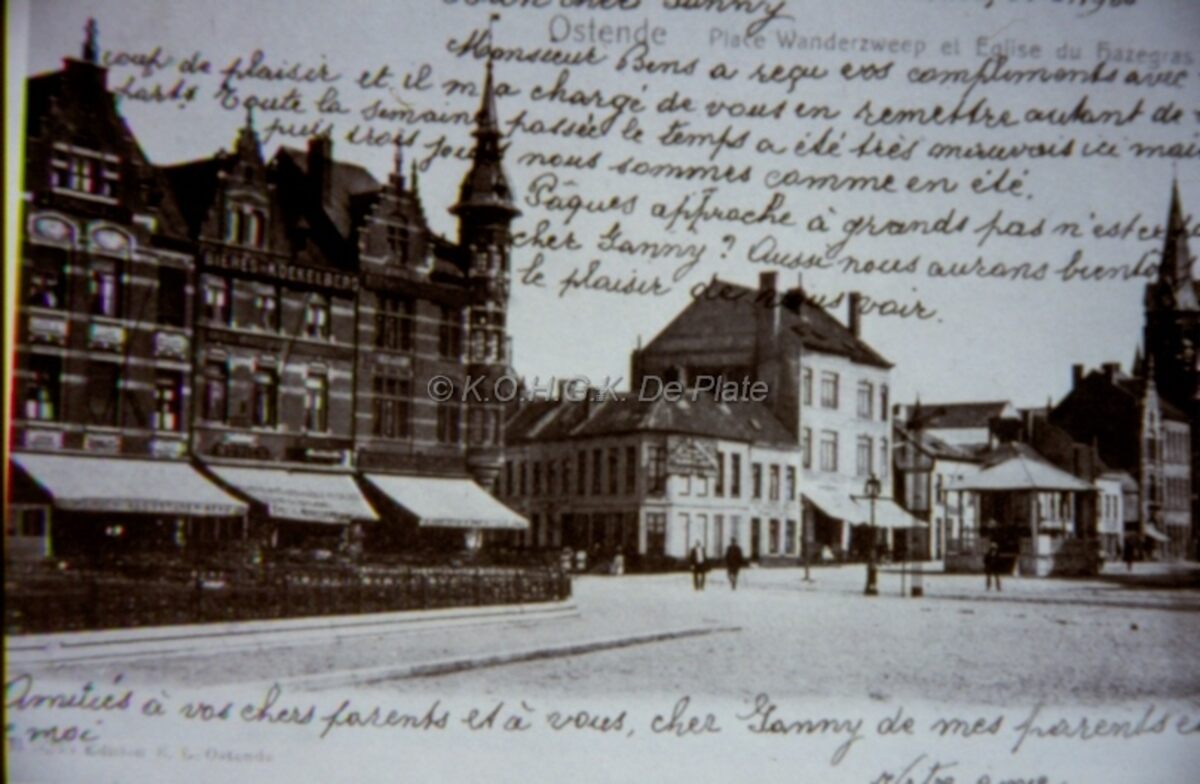 cher Fanny
Ostende Place Wanderzweep et Eglise du Hazegras
Monsieur Bens a reçu vos compliments avec
coup de plaisir et il m'a chargé de vous en remettre autant de
part. Toute la semaine passée le temps a été très mauvais ici mais
puis trois jours nous sommes comme en été.
Pâques approche à grands pas n'est ce pas
cher Fanny? Aussi nous aurons bientôt
le plaisir de nous voir.
BIÈRES KOEKELBERG
© K.O.H.G.K. De Plate
Amitiés à vos chers parents et à vous, cher Fanny de mes parents et
moi
E. L. Ostende
Votre amie